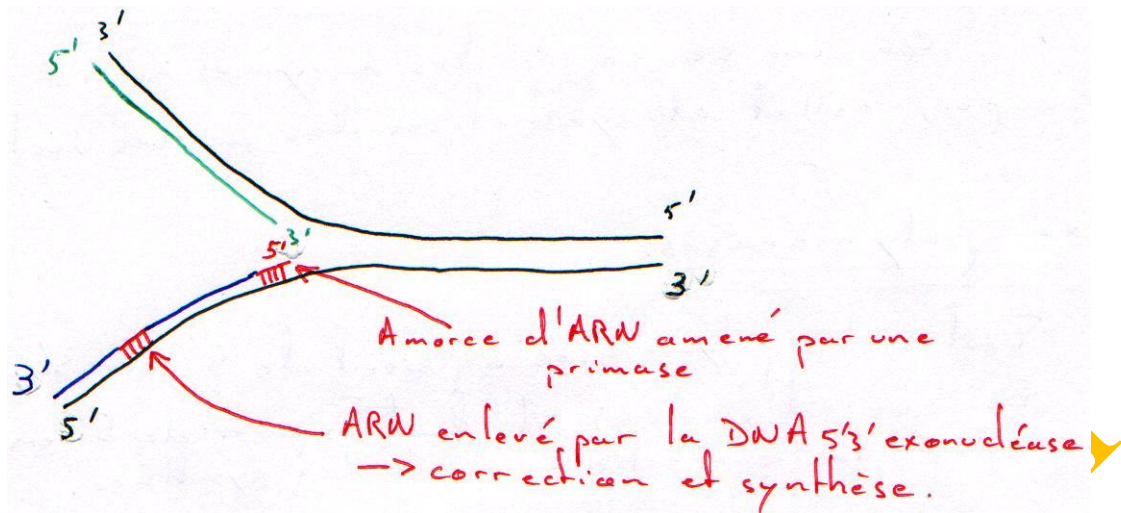 3'
5'
5'
5' 3'
3'
Amorce d'ARN amené par une
primase
3'
5'
ARN enlevé par la DNA 5'3' exonucléase
-> correction et synthèse.